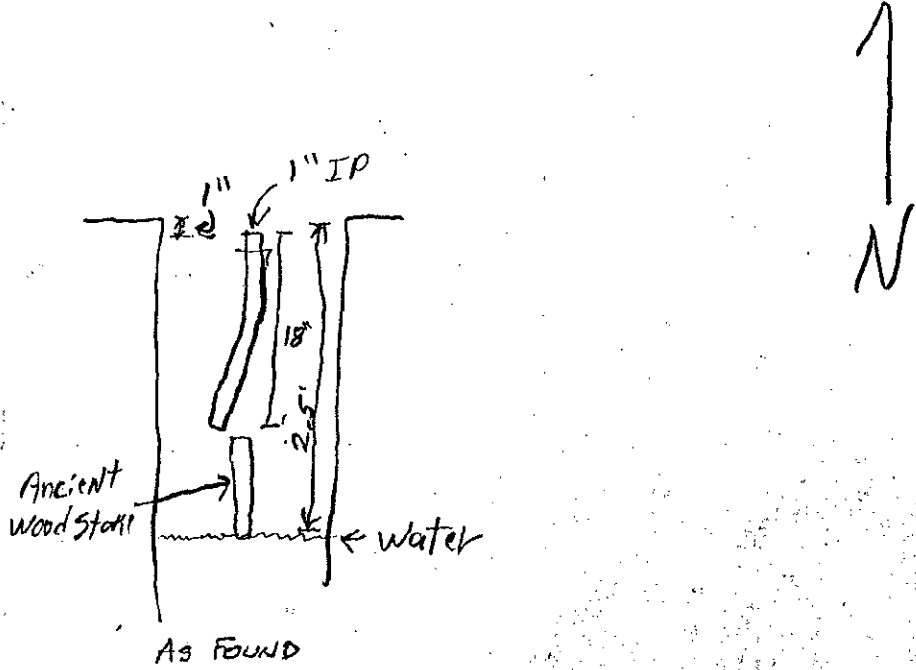 1" IP
1"
18"
2.5'
Ancient
Wood Stake
Water
As Found
N